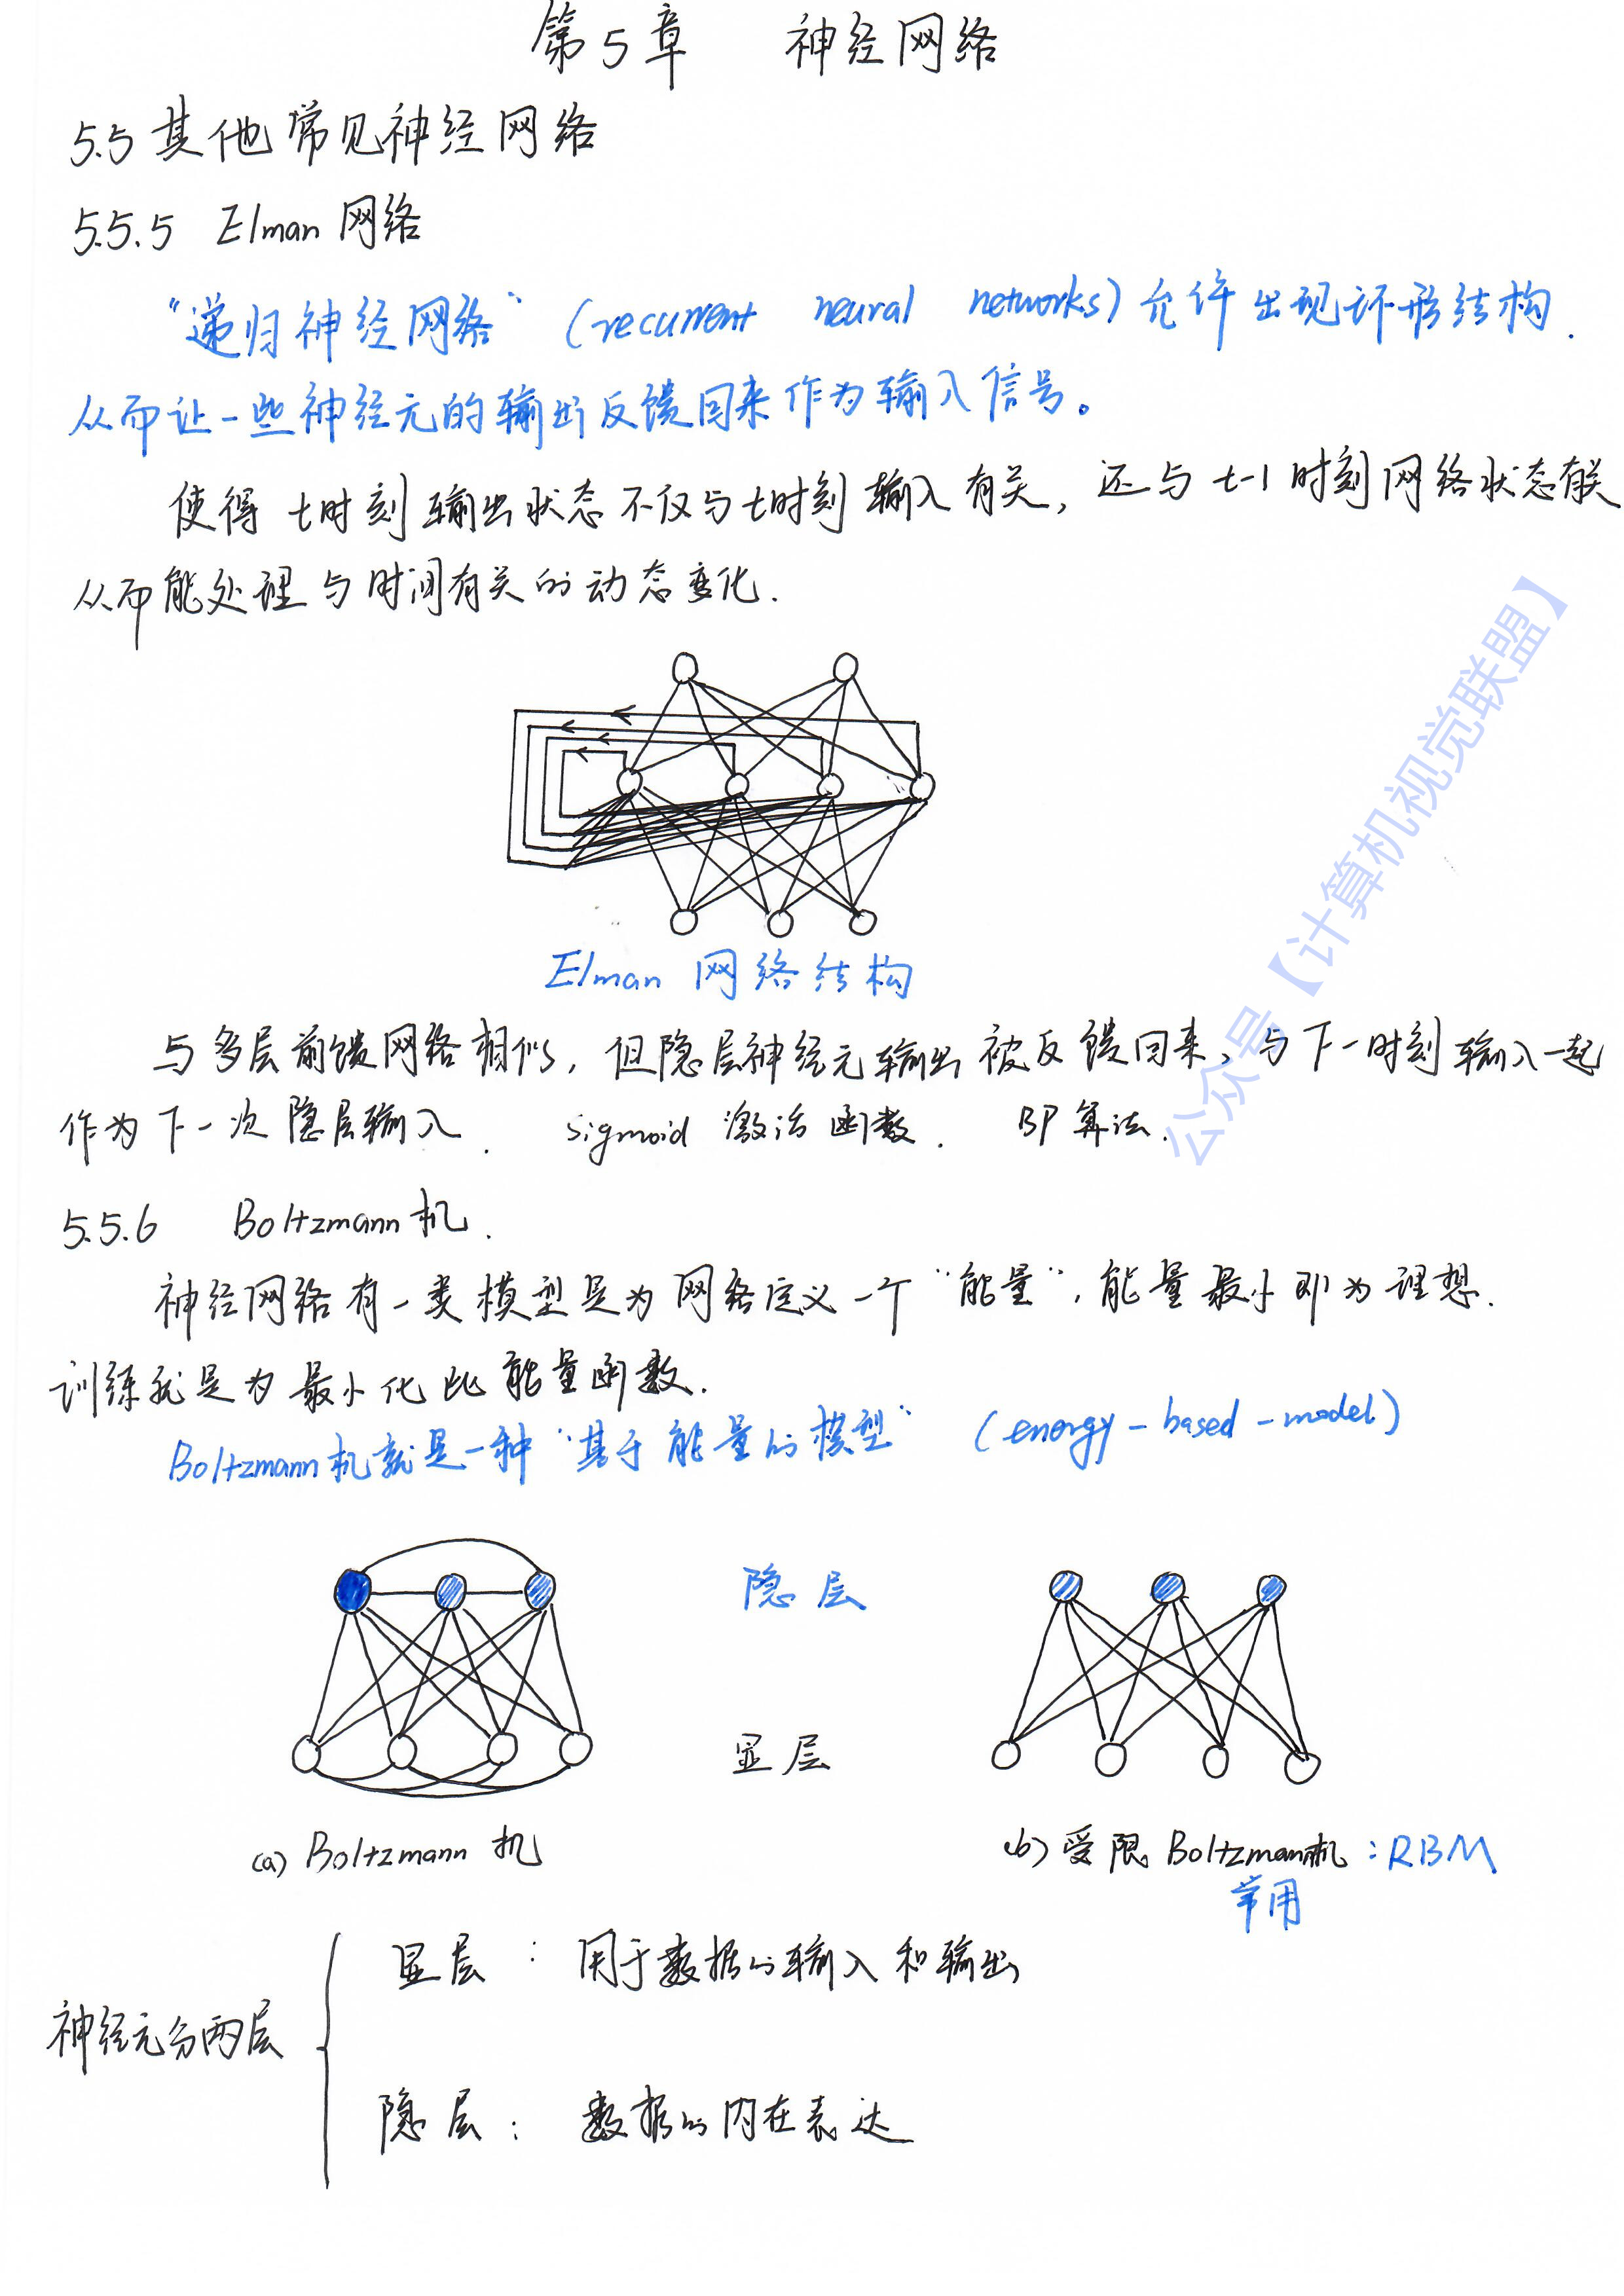 第5章 神经网络
5.5 其他常见神经网络
5.5.5 Elman 网络
“递归神经网络”(recurrent neural networks)允许出现环形结构.
从而让一些神经元的输出反馈回来作为输入信号。
使得 t时刻输出状态不仅与t时刻输入有关, 还与 t-1时刻网络状态有关
从而能处理与时间有关的动态变化.
Elman 网络结构
与多层前馈网络相似, 但隐层神经元输出被反馈回来, 与下一时刻输入一起
作为下一次隐层输入. Sigmoid 激活函数. BP算法.
5.5.6 Boltzmann机.
神经网络有一类模型是为网络定义一个“能量”, 能量最小即为理想.
训练就是为最小化此能量函数.
Boltzmann机就是一种“基于能量的模型” (energy-based-model)
隐层
显层
(a) Boltzmann 机
(b) 受限 Boltzmann机 : RBM
常用
显层 : 用于数据的输入和输出
神经元分两层
隐层 : 数据的内在表达
公众号【计算机视觉联盟】